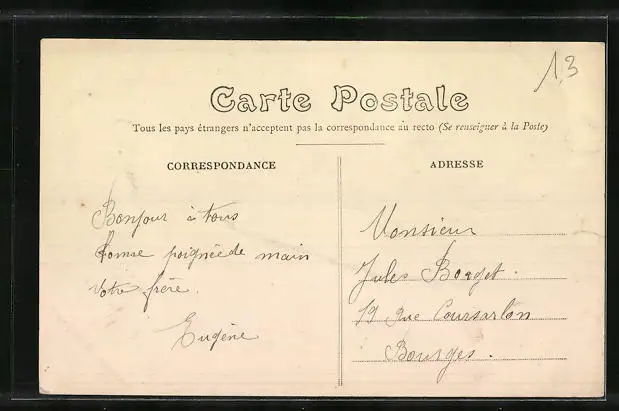 13
Carte Postale
Tous les pays étrangers n'acceptent pas la correspondance au recto (Se renseigner à la Poste)
CORRESPONDANCE
ADRESSE
Bonjour à tous
Bonne poignée de main
Votre frère.
Eugène
Monsieur
Jules Borget.
19 Rue Coursarlon
Bourges.